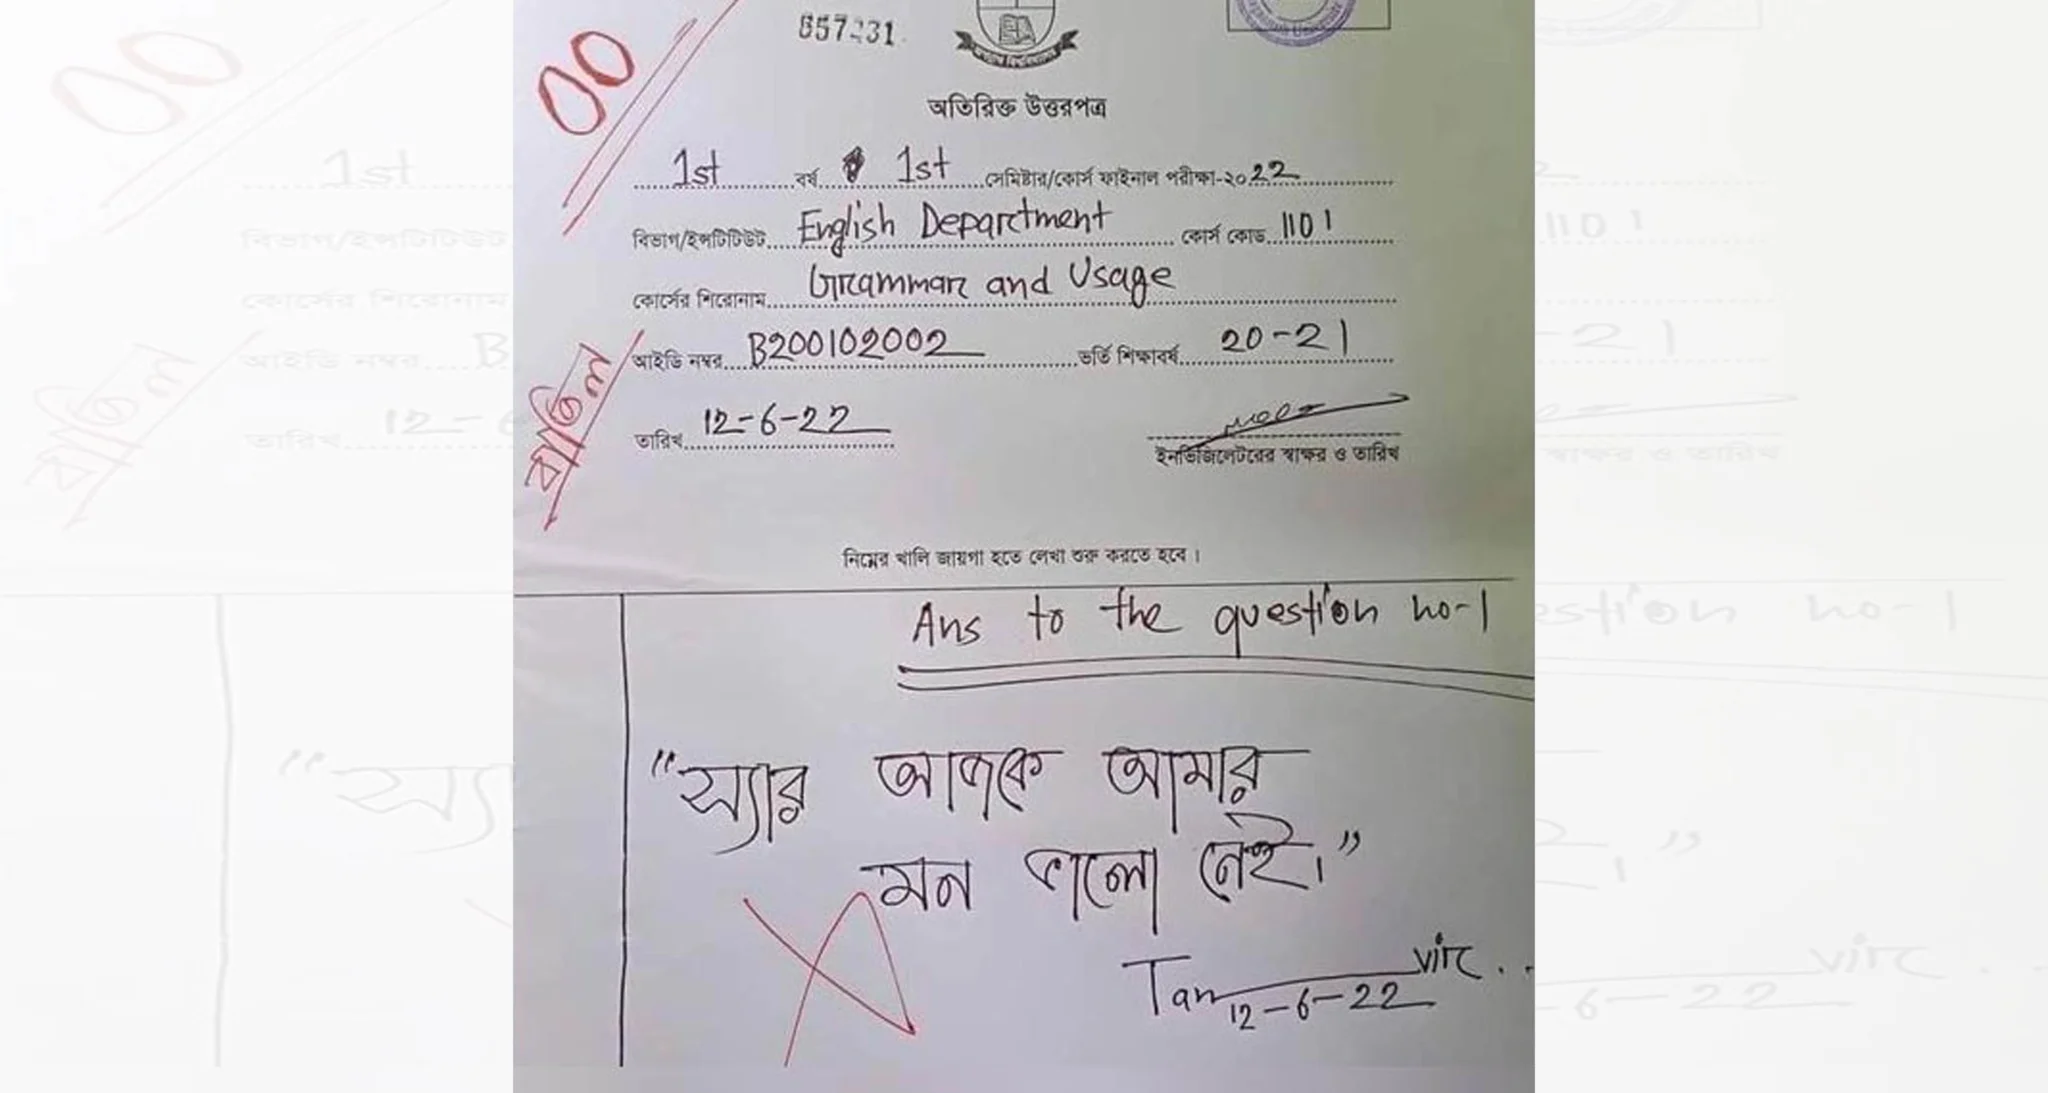 00
857231
অতিরিক্ত উত্তরপত্র
1st বর্ষ 1st সেমিষ্টার/কোর্স ফাইনাল পরীক্ষা-২০22
বিভাগ/ইন্সটিটিউট English Department কোর্স কোড 1101
কোর্সের শিরোনাম Grammar and Usage
আইডি নম্বর B200102002 ভর্তি শিক্ষাবর্ষ 20-21
বাতিল
তারিখ 12-6-22
ইনভিজিলেটরের স্বাক্ষর ও তারিখ
নিম্নের খালি জায়গা হতে লেখা শুরু করতে হবে।
Ans to the question no-1
"স্যার আজকে আমার
মন ভালো নেই।"
Tanvir..
12-6-22